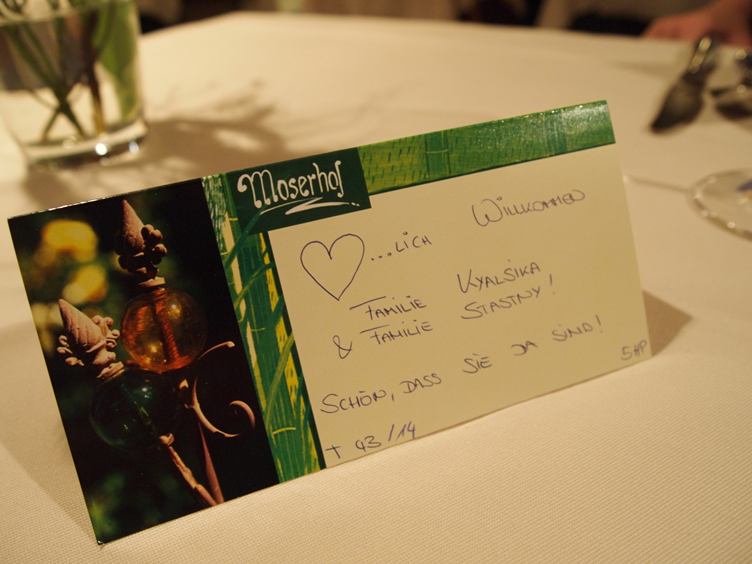 Moserhof
♡...LICH WILLKOMMEN
FAMILIE KYALSIKA
& FAMILIE STASTNY!
SCHÖN, DASS SIE DA SIND!
5HP
T 93/14